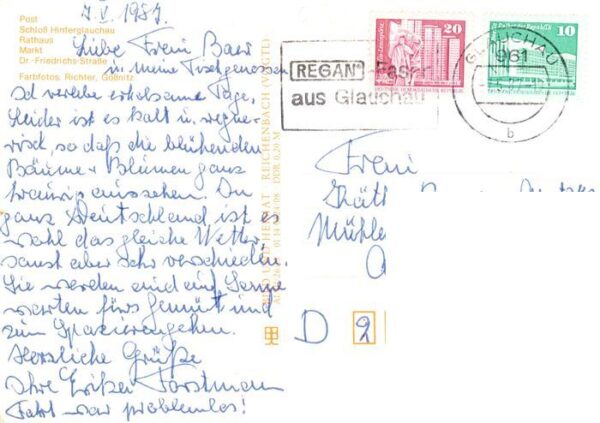 7.V.1987.
Post
Schloß Hinterglauchau
Rathaus
Markt
Dr.-Friedrichs-Straße
Farbfotos: Richter, Gößnitz
Liebe Frau
u. meine Tischgenossen
verlebe erholsame Tage,
Leider ist es kalt u. regne-
risch, so daß die blühenden
Bäume + Blumen ganz
traurig aussehen. In
ganz Deutschland ist es
wohl das gleiche Wetter,
sonst aber sehr verschieden.
Sie werden auf Sonne
warten fürs Gemüt und
zum Spazierengehen.
Herzliche Grüße
Ihre Forstmann
Fahrt war problemlos!
BILD UND HEIMAT REICHENBACH (VOGTL)
DDR 0,20 M
20
10
REGAN
aus Glauchau
GLAUCHAU
961
b
Frau
Mühle
D